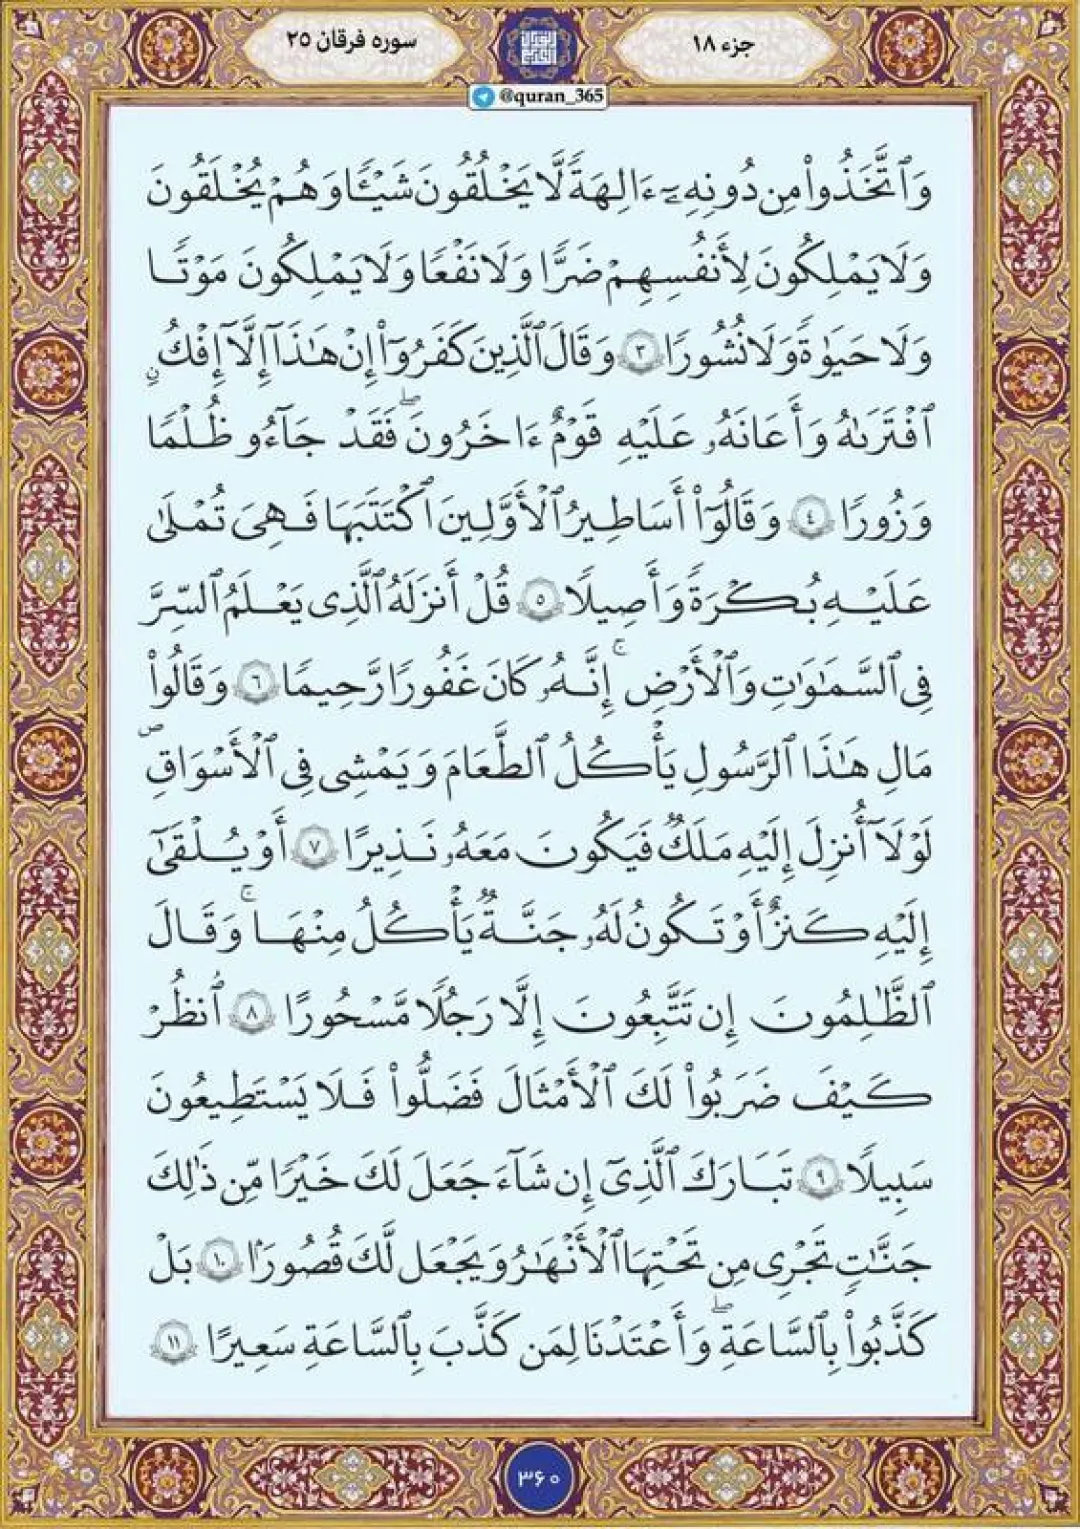 جزء ۱۸
سوره فرقان ۲۵
@quran_365
وَٱتَّخَذُوا۟ مِن دُونِهِۦٓ ءَالِهَةً لَّا يَخْلُقُونَ شَيْـًٔا وَهُمْ يُخْلَقُونَ
وَلَا يَمْلِكُونَ لِأَنفُسِهِمْ ضَرًّا وَلَا نَفْعًا وَلَا يَمْلِكُونَ مَوْتًا
وَلَا حَيَوٰةً وَلَا نُشُورًا ٣ وَقَالَ ٱلَّذِينَ كَفَرُوٓا۟ إِنْ هَـٰذَآ إِلَّآ إِفْكٌ
ٱفْتَرَىٰهُ وَأَعَانَهُۥ عَلَيْهِ قَوْمٌ ءَاخَرُونَ ۖ فَقَدْ جَآءُو ظُلْمًا
وَزُورًا ٤ وَقَالُوٓا۟ أَسَـاطِيرُ ٱلْأَوَّلِينَ ٱكْتَتَبَهَا فَهِىَ تُمْلَىٰ
عَلَيْهِ بُكْرَةً وَأَصِيلًا ٥ قُلْ أَنزَلَهُ ٱلَّذِى يَعْلَمُ ٱلسِّرَّ
فِى ٱلسَّمَـٰوَٰتِ وَٱلْأَرْضِ ۚ إِنَّهُۥ كَانَ غَفُورًا رَّحِيمًا ٦ وَقَالُوا۟
مَالِ هَـٰذَا ٱلرَّسُولِ يَأْكُلُ ٱلطَّعَامَ وَيَمْشِى فِى ٱلْأَسْوَاقِ
لَوْلَآ أُنزِلَ إِلَيْهِ مَلَكٌ فَيَكُونَ مَعَهُۥ نَذِيرًا ٧ أَوْ يُلْقَىٰٓ
إِلَيْهِ كَنزٌ أَوْ تَكُونُ لَهُۥ جَنَّةٌ يَأْكُلُ مِنْهَا ۚ وَقَالَ
ٱلظَّـٰلِمُونَ إِن تَتَّبِعُونَ إِلَّا رَجُلًا مَّسْحُورًا ٨ ٱنظُرْ
كَيْفَ ضَرَبُوا۟ لَكَ ٱلْأَمْثَالَ فَضَلُّوا۟ فَلَا يَسْتَطِيعُونَ
سَبِيلًا ٩ تَبَارَكَ ٱلَّذِىٓ إِن شَآءَ جَعَلَ لَكَ خَيْرًا مِّن ذَٰلِكَ
جَنَّـٰتٍ تَجْرِى مِن تَحْتِهَا ٱلْأَنْهَـٰرُ وَيَجْعَل لَّكَ قُصُورًۢا ١٠ بَلْ
كَذَّبُوا۟ بِٱلسَّاعَةِ ۖ وَأَعْتَدْنَا لِمَن كَذَّبَ بِٱلسَّاعَةِ سَعِيرًا ١١
۳۶۰